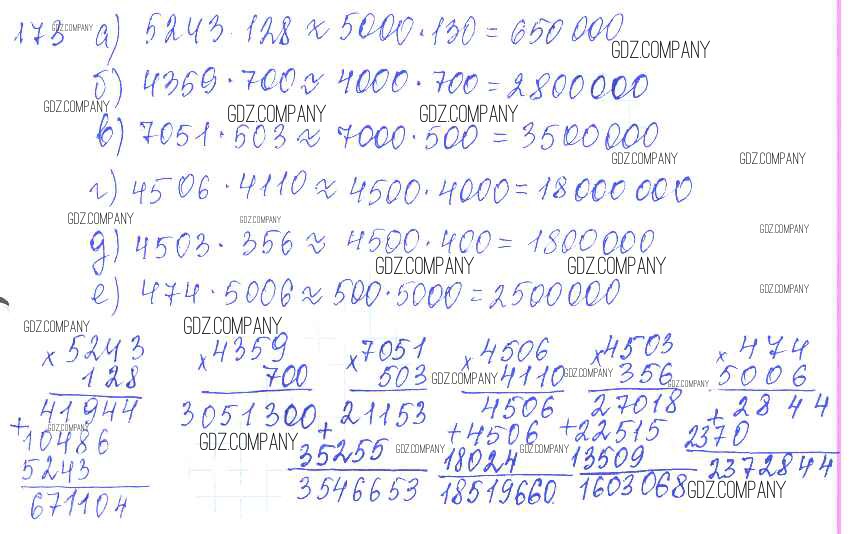 173 а) 5243 · 128 ≈ 5000 · 130 = 650 000
GDZ.COMPANY
GDZ.COMPANY
б) 4359 · 700 ≈ 4000 · 700 = 2800000
GDZ.COMPANY
GDZ.COMPANY GDZ.COMPANY
в) 7051 · 503 ≈ 7000 · 500 = 3500000
GDZ.COMPANY GDZ.COMPANY
г) 4506 · 4110 ≈ 4500 · 4000 = 18 000 000
GDZ.COMPANY GDZ.COMPANY
GDZ.COMPANY
д) 4503 · 356 ≈ 4500 · 400 = 1800000
GDZ.COMPANY GDZ.COMPANY
е) 474 · 5006 ≈ 500 · 5000 = 2500000
GDZ.COMPANY
GDZ.COMPANY GDZ.COMPANY
× 5243 × 4359 × 7051 × 4506 × 4503 × 474
128 700 503 GDZ.COMPANY 4110 GDZ.COMPANY 356 GDZ.COMPANY 5006
41944 3051300 21153 4506 27018 2844
GDZ.COMPANY
+ 10486 GDZ.COMPANY + 35255 GDZ.COMPANY + 4506 GDZ.COMPANY + 22515 + 2370
5243 3546653 18024 13509 2372844
671104 18519660 1603068 GDZ.COMPANY